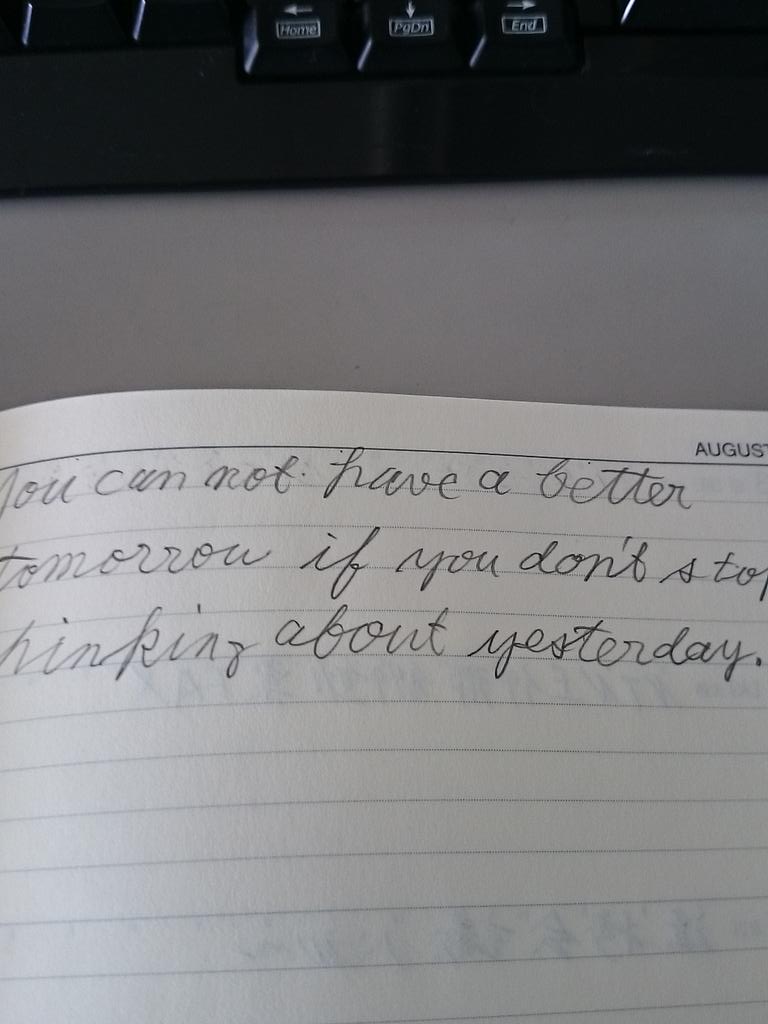 Home PgDn End
AUGUST
You can not have a better
tomorrow if you don't stop
thinking about yesterday.